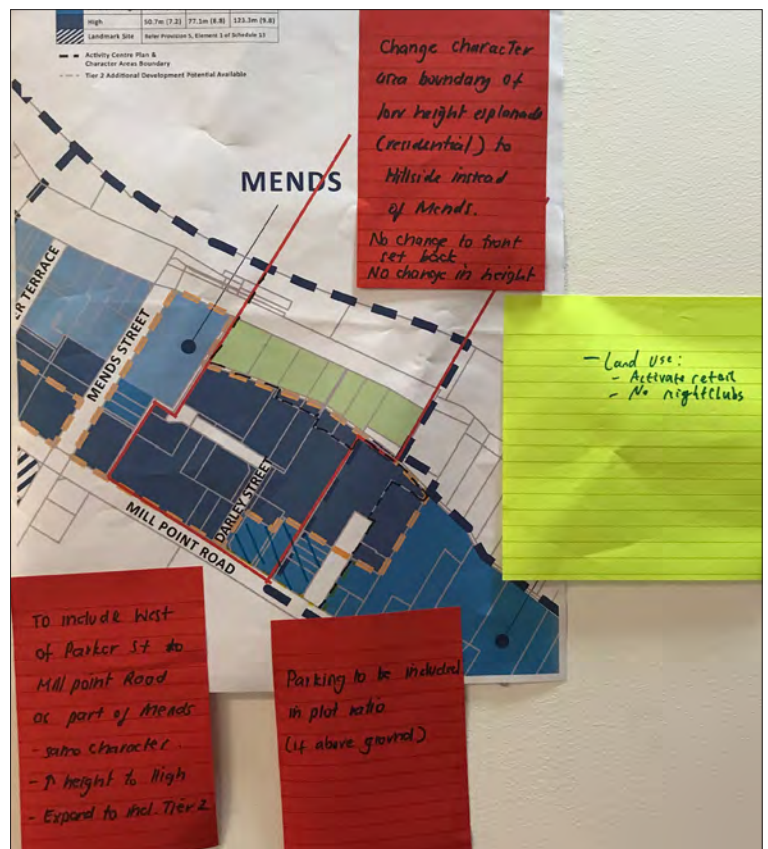 High 50.7m (7.2) 77.1m (8.8) 123.3m (9.8)
Landmark Site Refer Provision 5, Element 1 of Schedule 13
Activity Centre Plan &
Character Areas Boundary
Tier 2 Additional Development Potential Available
MENDS
ER TERRACE
MENDS STREET
DARLEY STREET
MILL POINT ROAD
Change character
area boundary of
low height esplanade
(residential) to
Hillside instead
of Mends.
No change to front
set back
No change in height
- Land use:
- Activate retail
- No nightclubs
To include West
of Parker St to
Mill point Road
as part of Mends
- same character.
- ↑ height to High
- Expand to incl. Tier 2
Parking to be included
in plot ratio
(if above ground)